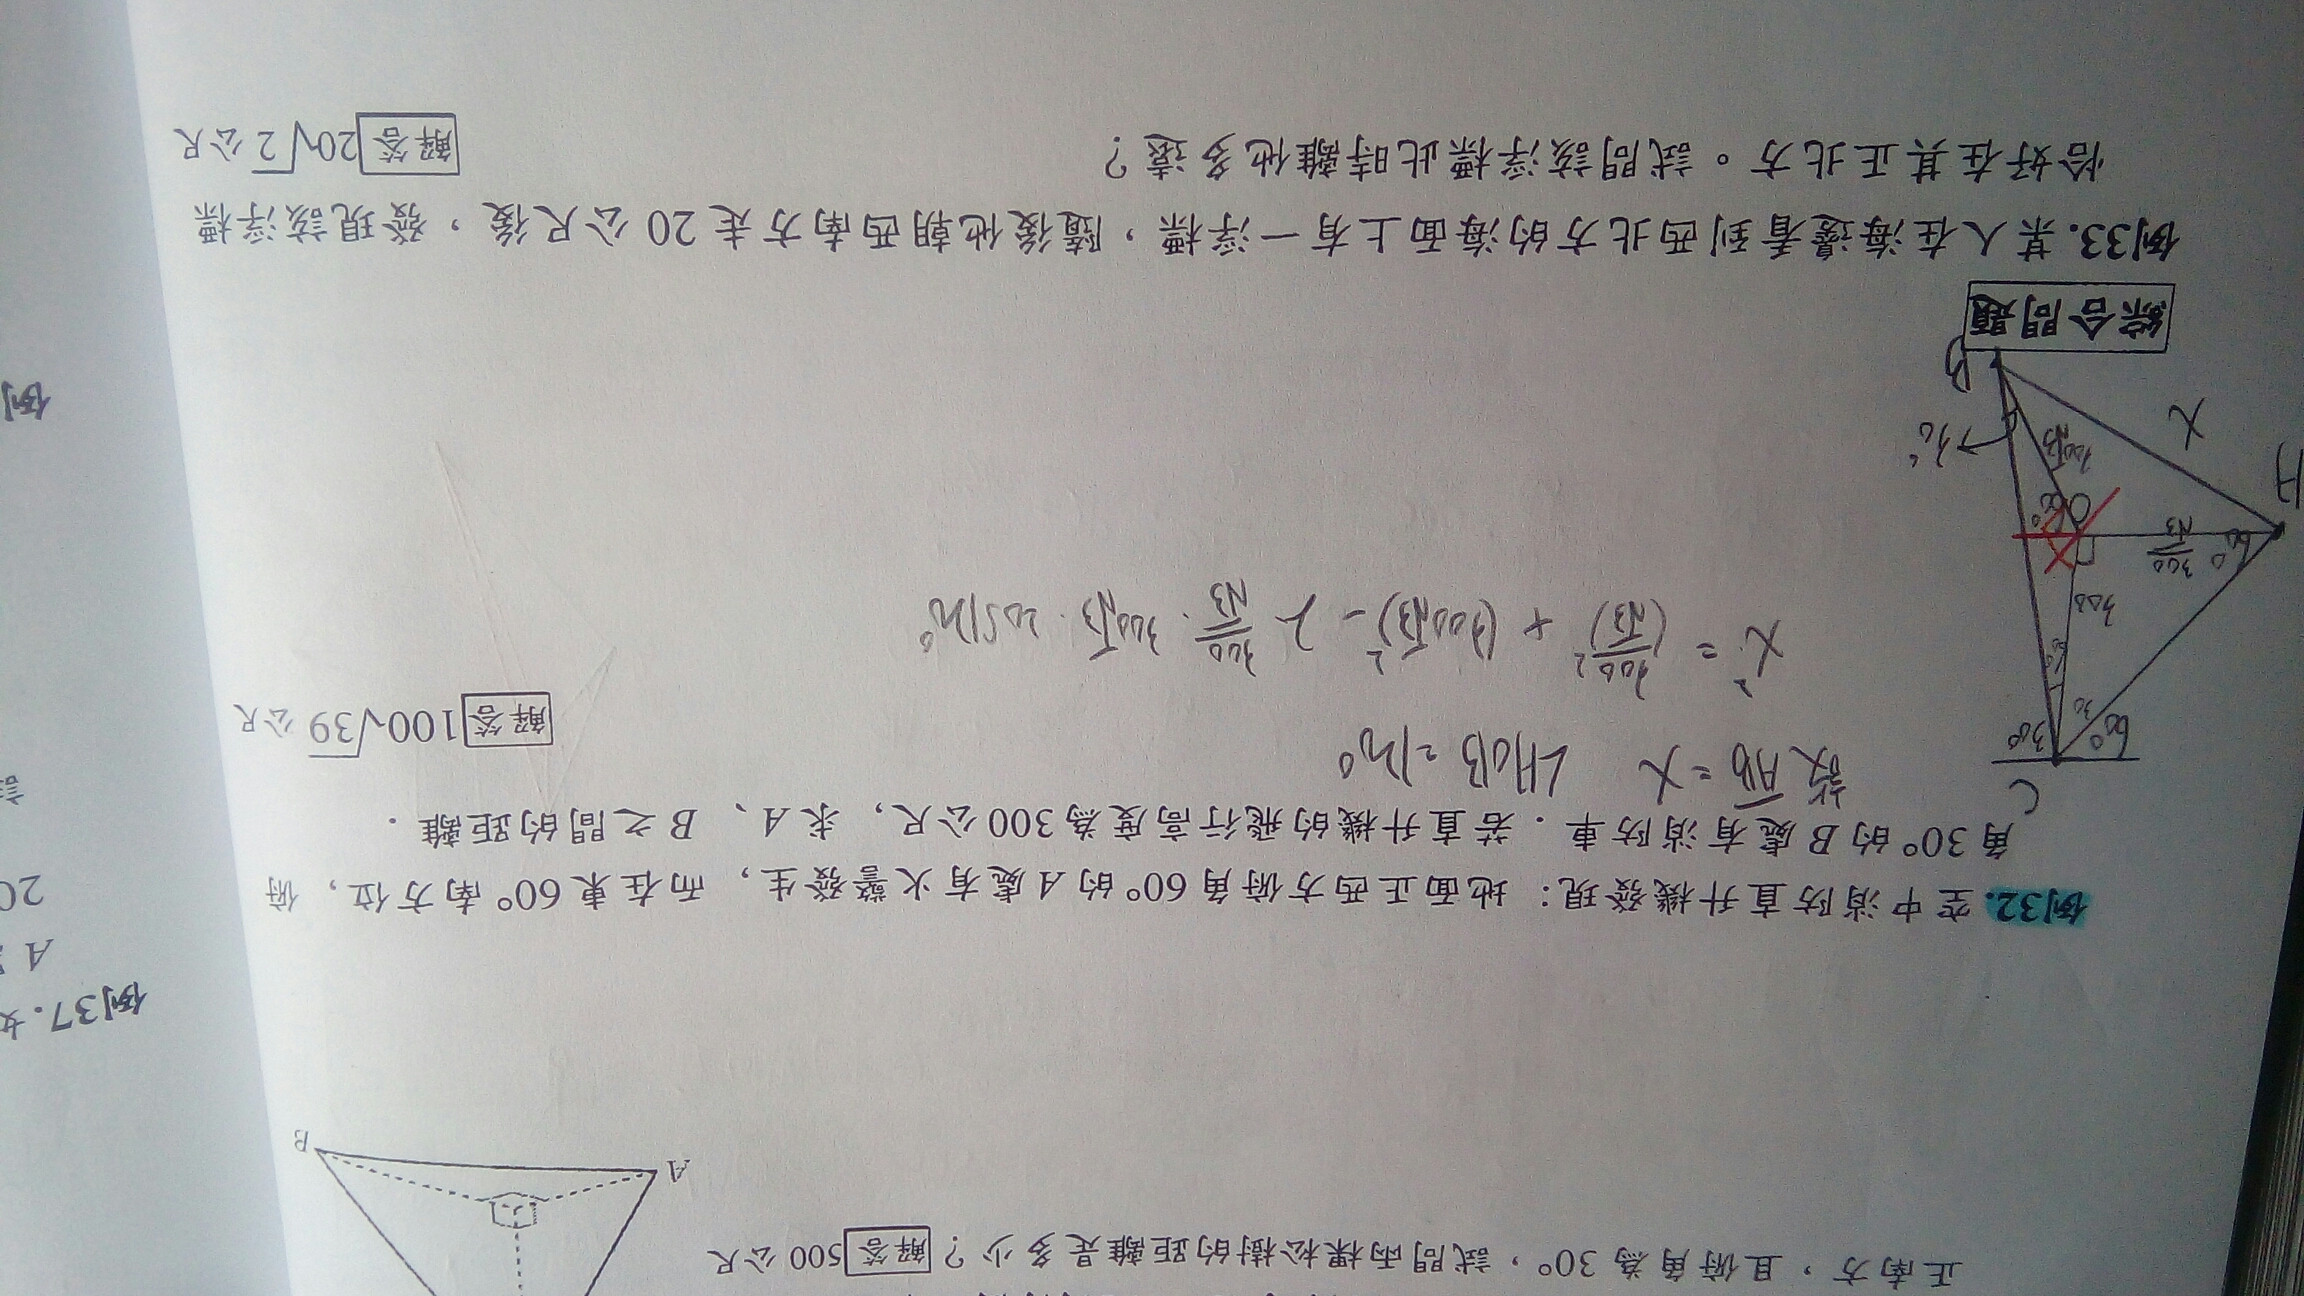 正南方，且俯角為30°，試問兩棵松樹的距離是多少？解答500公尺
A
B
例32.空中消防直升機發現：地面正西方俯角60°的A處有火警發生，而在東60°南方位，俯
角30°的B處有消防車．若直升機的飛行高度為300公尺，求A、B之間的距離．
解答100√39公尺
設AB=x ∠AOB=120°
x²=(300/√3)²+(300√3)²-2·300/√3·300√3·cos120°
C
60°
30°
30
60°
300
60°
300/√3
A
O
60°
300√3
30°
x
B
綜合問題
例33.某人在海邊看到西北方的海面上有一浮標，隨後他朝西南方走20公尺後，發現該浮標
恰好在其正北方。試問該浮標此時離他多遠？
解答20√2公尺
例37.
A
20
例